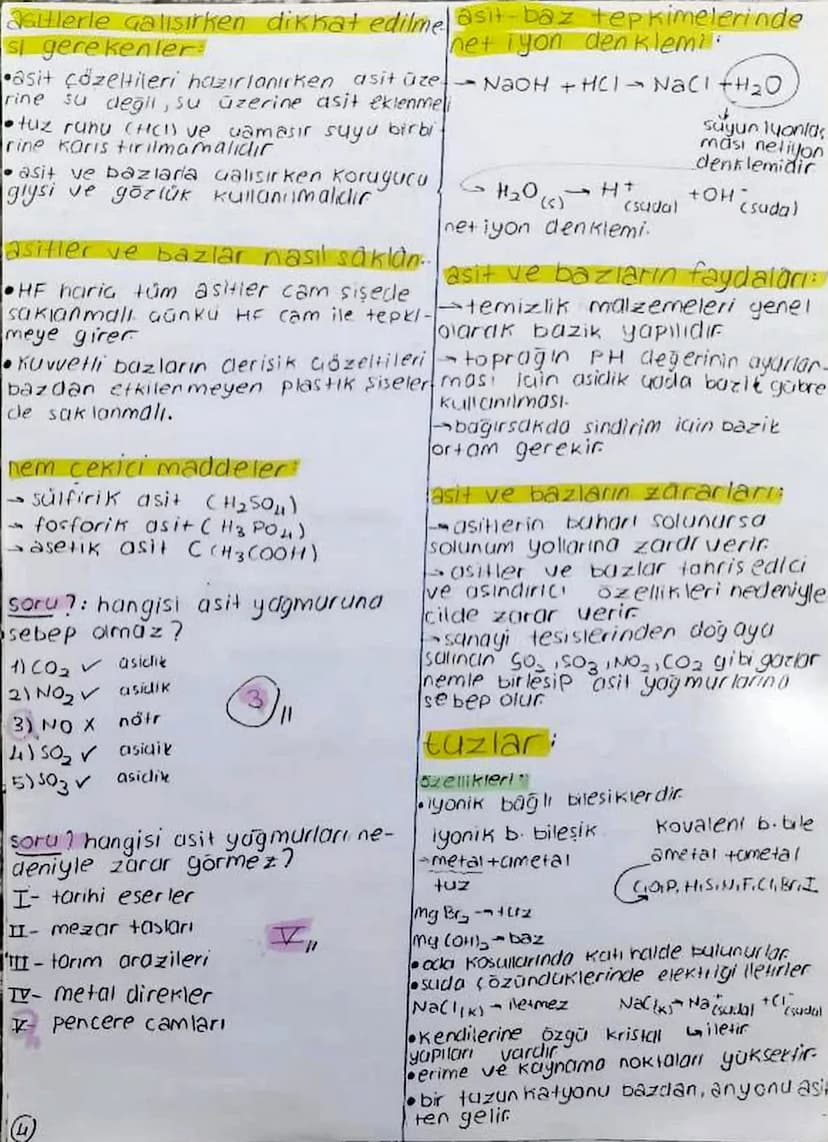 asitlerle çalışırken dikkat edilme
si gerekenler:
•asit çözeltileri hazırlanırken asit üze
rine su değil, su üzerine asit eklenmeli
•tuz ruhu (HCl) ve çamaşır suyu birbi
rine karıştırılmamalıdır
•asit ve bazlarla çalışırken koruyucu
giysi ve gözlük kullanılmalıdır
asitler ve bazlar nasıl saklan..
•HF hariç tüm asitler cam şişede
saklanmalı. çünkü HF cam ile tepki-
meye girer
•Kuvvetli bazların derişik çözeltileri
bazdan etkilenmeyen plastik şişeler
de saklanmalı.
nem çekici maddeler:
→ sülfirik asit (H₂SO₄)
→ fosforik asit (H₃PO₄)
→ asetik asit C(H₃COOH)
soru?: hangisi asit yağmuruna
sebep olmaz?
1) CO₂ ✓ asidik
2) NO₂ ✓ asidik
3) NO X nötr
4) SO₂ ✓ asidik
5) SO₃ ✓ asidik
3 //
soru? hangisi asit yağmurları ne-
deniyle zarar görmez?
I- tarihi eserler
II- mezar taşları
III- tarım arazileri
IV- metal direkler
V- pencere camları
V //
4
asit-baz tepkimelerinde
net iyon denklemi:
→ NaOH + HCl → NaCl + H₂O
suyun iyonlaş
ması net iyon
denklemidir
H₂O(s) → H⁺(suda) + OH⁻(suda)
net iyon denklemi.
asit ve bazların faydaları:
→ temizlik malzemeleri genel
olarak bazik yapılıdır
→ toprağın PH değerinin ayarlan-
ması için asidik yada bazik gübre
kullanılması.
→ bağırsakda sindirim için bazik
ortam gerekir.
asit ve bazların zararları:
→ asitlerin buharı solunursa
solunum yollarına zarar verir.
→ asitler ve bazlar tahriş edici
ve aşındırıcı özellikleri nedeniyle
cilde zarar verir
→ sanayi tesislerinden doğaya
salınan SO₂, SO₃, NO₂, CO₂ gibi gazlar
nemle birleşip asit yağmurlarına
sebep olur
tuzlar:
özellikleri:
•iyonik bağlı bileşiklerdir.
iyonik b. bileşik kovalent b. bile
→ metal + ametal ametal + ametal
tuz C,O,P,H,S,N,F,Cl,Br,I
MgBr₂ → tuz
Mg(OH)₂ → baz
•oda koşullarında katı halde bulunurlar.
•suda çözündüklerinde elektriği iletirler
NaCl(k) → iletmez NaCl(k) → Na⁺(suda) + Cl⁻(suda)
↳ iletir
•kendilerine özgü kristal
yapıları vardır
•erime ve kaynama noktaları yüksektir.
•bir tuzun katyonu bazdan, anyonu asi
ten gelir.